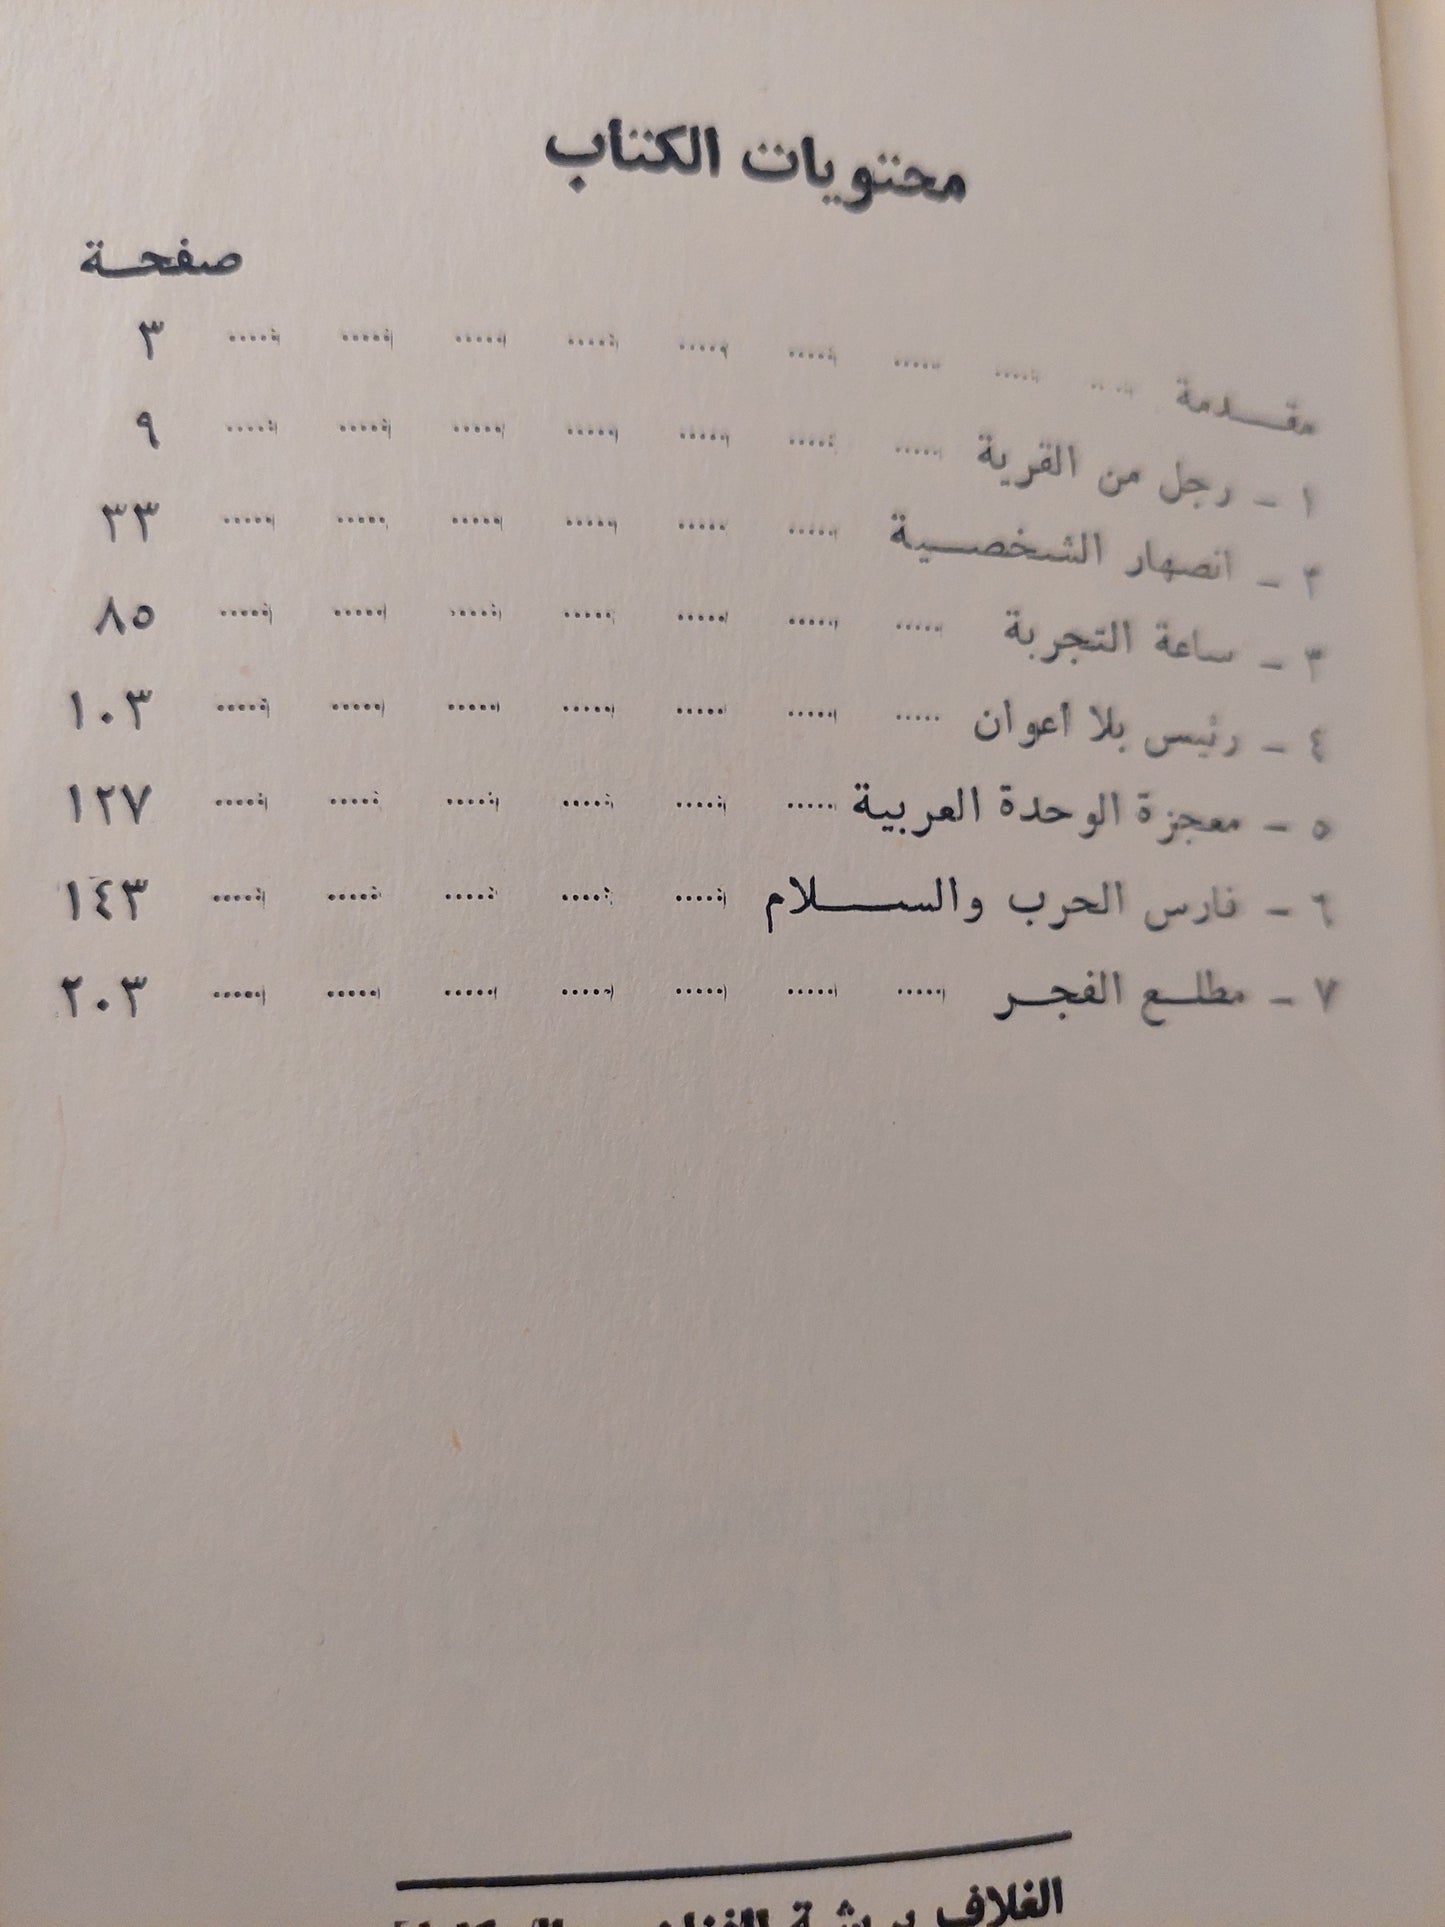 محتويات الكتاب
صفحة
مقدمة ..... ..... ..... ..... ..... ..... ..... ..... ..... ٣
١ - رجل من القرية ..... ..... ..... ..... ..... ..... ..... ٩
٢ - انصهار الشخصية ..... ..... ..... ..... ..... ..... ٣٣
٣ - ساعة التجربة ..... ..... ..... ..... ..... ..... ..... ٨٥
٤ - رئيس بلا أعوان ..... ..... ..... ..... ..... ..... ..... ١٠٣
٥ - معجزة الوحدة العربية ..... ..... ..... ..... ..... ..... ١٢٧
٦ - فارس الحرب والسلام ..... ..... ..... ..... ..... ١٤٣
٧ - مطلع الفجر ..... ..... ..... ..... ..... ..... ..... ٢٠٣
الغلاف بريشة الفنان